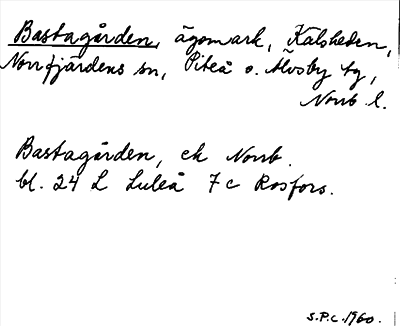 Bastagården, ägomark, Kalsheden,
Norrfjärdens sn, Piteå o. Älvsby tg,
Norrb l.
Bastagården, ek Norrb.
bl. 24 L Luleå 7c Rosfors.
S.P.C. 1960.